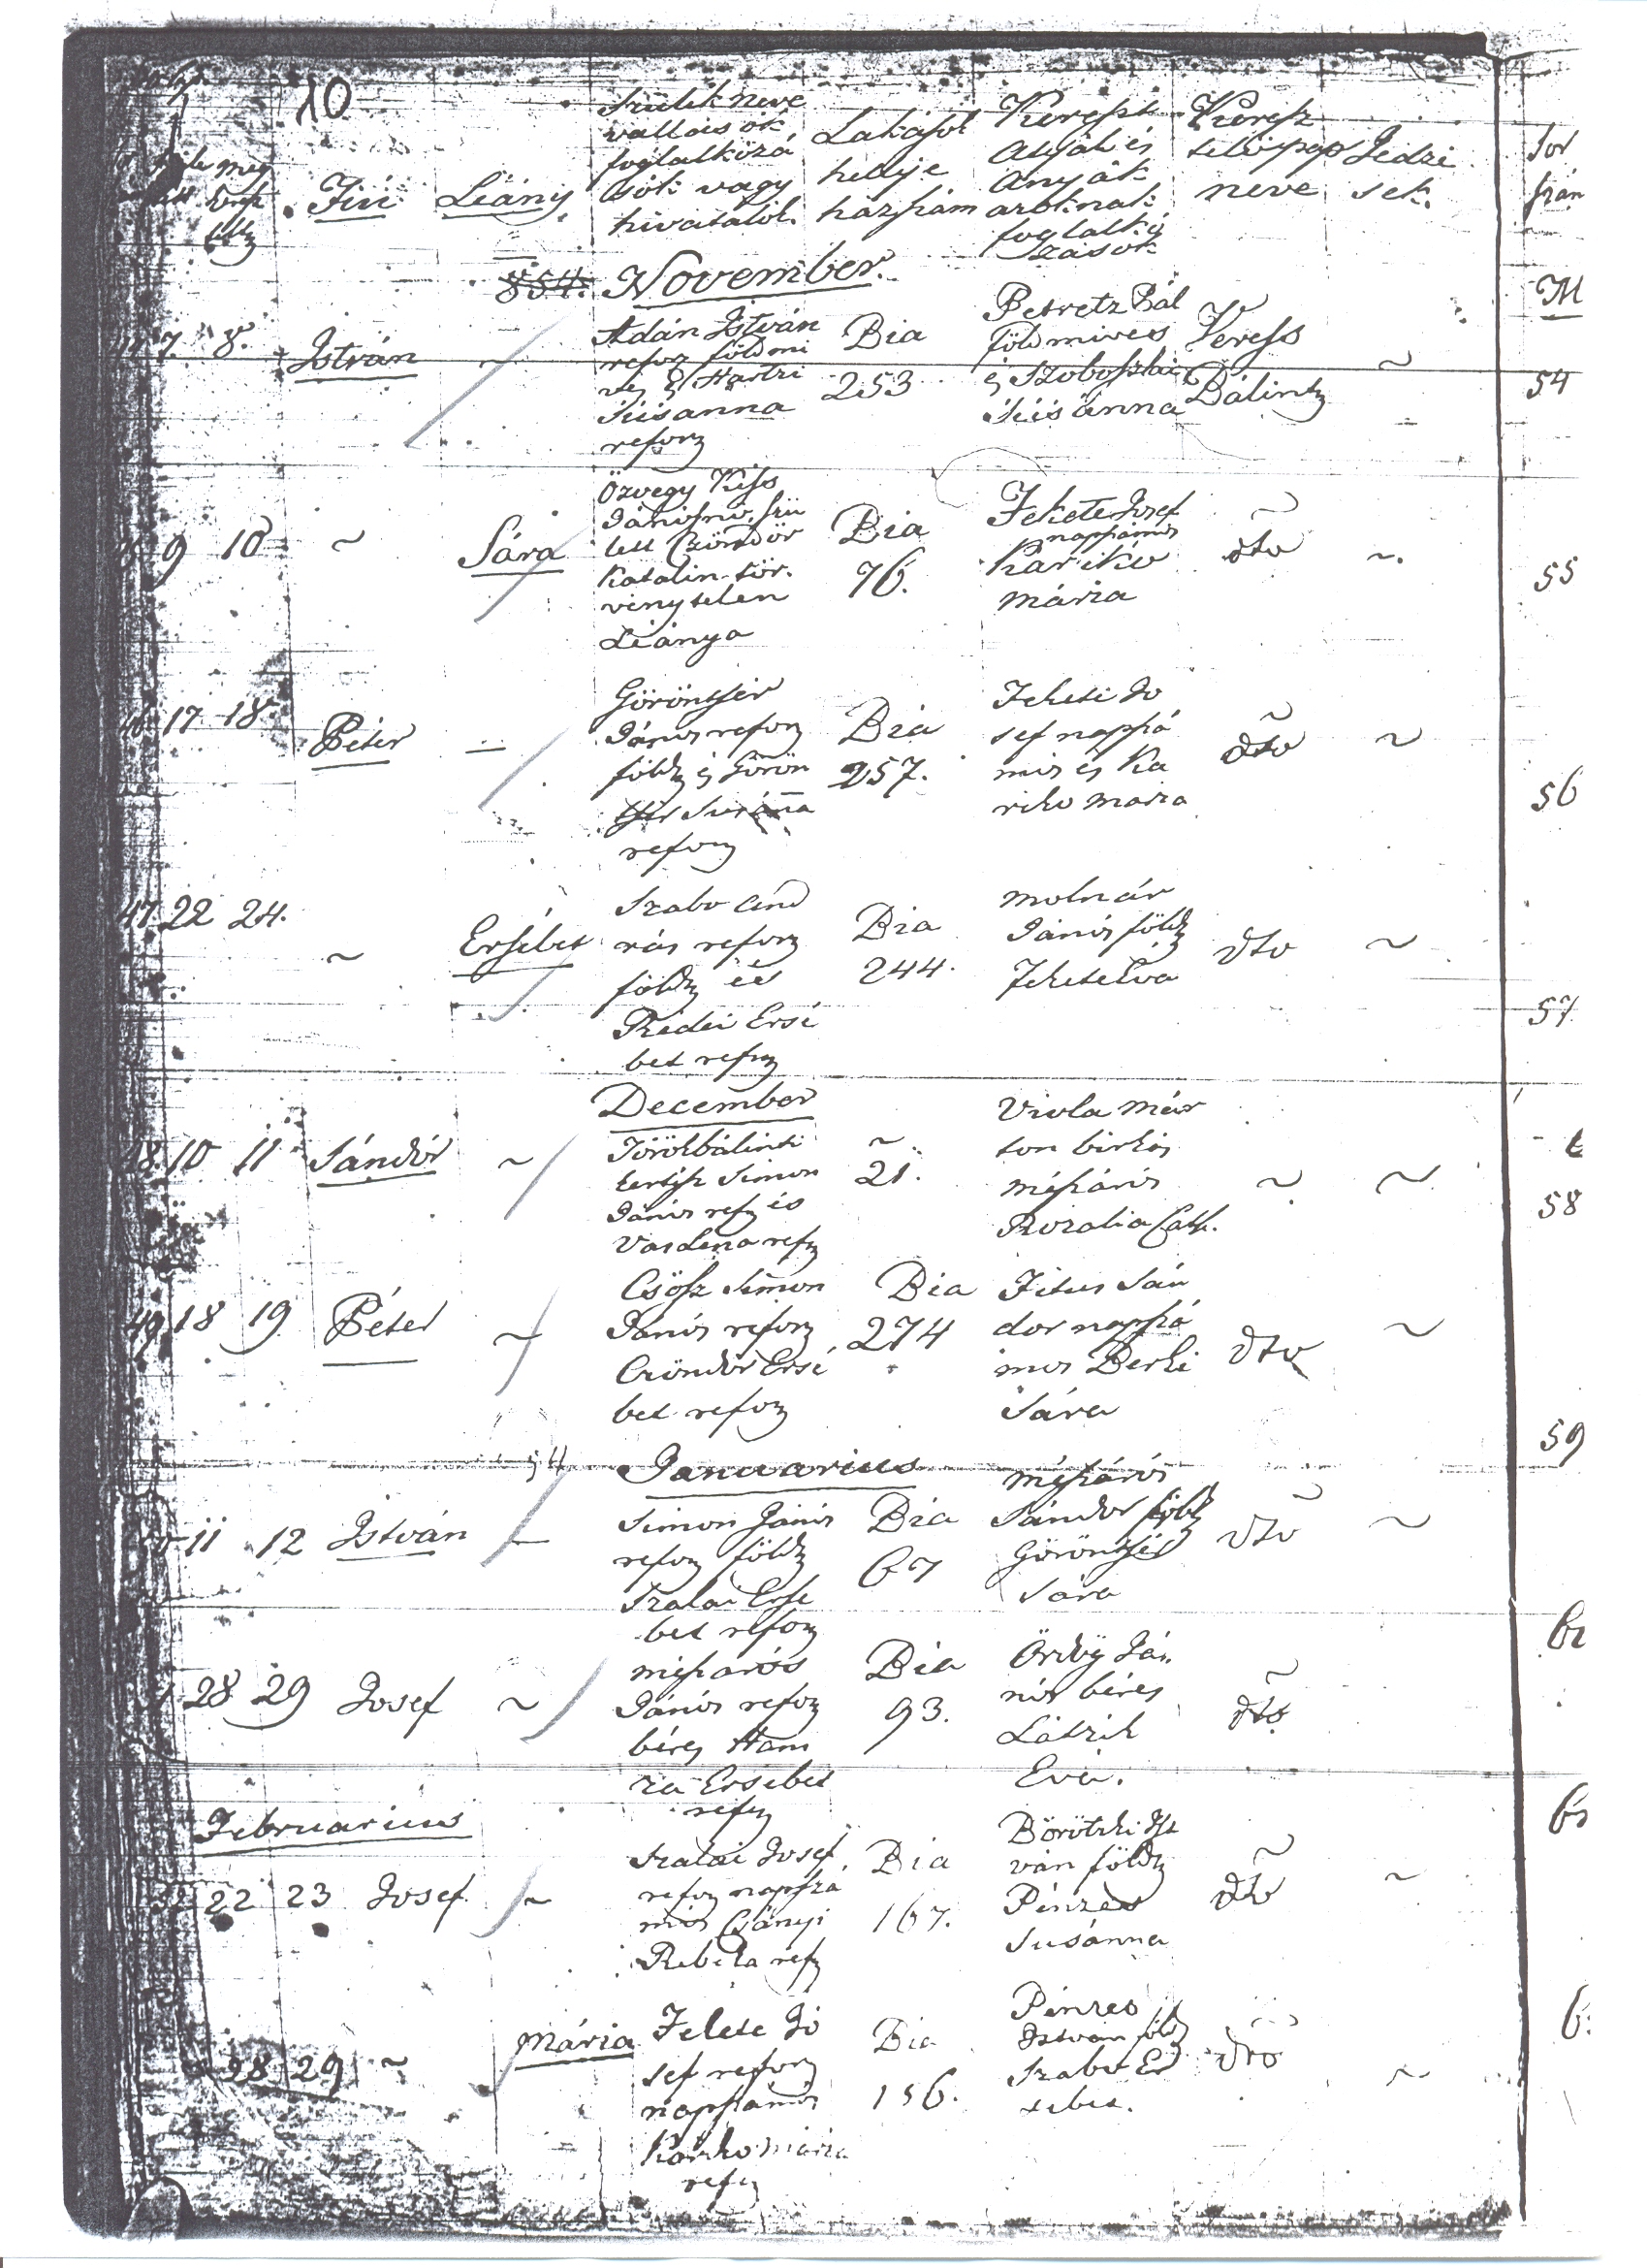 10
Szülék neve
vallások
foglalkozá
sok vagy
hivatalok.
Fiú
Leány
Lakások
hellye
házszám
Kereszt
Atyák és
Anyák
azoknak
foglalko
zások
Keresz
telö pap
neve
Jedzé
sek.
854. November.
7. 8. István ~
Adán István
reform földmi
ves és Hartzi
Susanna
reform
Bia
253
Petretz Pál
földmives
és Szoboszlai
Susánna
Veress
Bálint
~
54
9 10 ~ Sára
Özvegy Kiss
Jánosné, szü
lett Czöndör
Katalin tör.
vénytelen
Leánya
Bia
76.
Fekete Josef
napszámos
Karikó
mária
dto
~.
55
17 18 Péter
Göröntsér
János reform
földm és Görön
tsér Susánna
reform
Bia
257.
Fekete Jo
sef napszá
mos és Ka
riko maria
dto
~
56
47. 22 24. ~ Ersébet
Szabo And
rás reform
földm és
Rédei Ersé
bet refm
Bia
244.
molnár
János földm
Fekete Eva
dto
~
57
December
48. 10 11 Sándór ~
Törökbálinti
kertész Simon
János refm és
Vas Lena refm
~
21.
Viola már
ton birkás
mészáros
Rozalia Cath.
~
~
58
49. 18 19 Péter ~
Csösz Simon
János reform
Czöndör Ersé
bet reform
Bia
274
Titus Sán
dor napszá
mos Berki
Sára
dto
~
59
Januarius
11 12 István
Simon János
reform földm
Szalai Erse
bet reform
Bia
67
mészáros
Sándor földm
Göröntsér
Sára
dto
~
28 29 Josef ~
mészáros
János reform
béres Ham
za Ersebet
refm
Bia
93.
Ördög Já
nos béres
Látzik
Eva.
dto
Februarius
22 23 Josef ~
Szalai Josef
reform napszá
mos Csányi
Rebeka refm
Bia
167.
Börötzki Ist
ván földm
Pénzes
Susánna
dto
~
28 29 ~ Mária
Fekete Jo
sef reform
napszámos
Kariko mária
refm
Bia
156.
Pénzes
István földm
Szabo Er
sebet.
dto
~